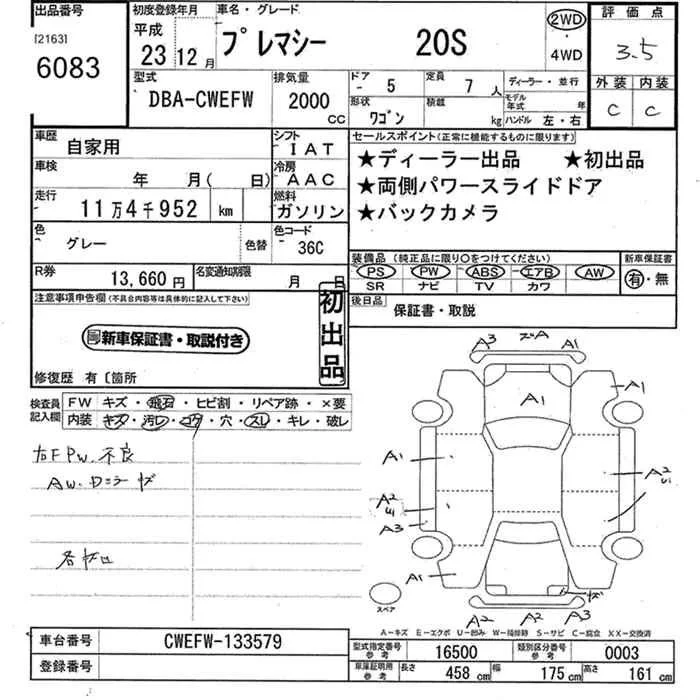 出品番号
[2163]
6083
初度登録年月
平成
23 12月
車名・グレード
プレマシー 20S
2WD
・
4WD
評価点
3.5
外装 内装
C C
型式
DBA-CWEFW
排気量
2000
CC
ドア
- 5
定員
7 人
形状
ワゴン
積載
kg
ディーラー・並行
モデル年式 年
ハンドル 左・右
車歴
自家用
シフト
IAT
車検
年 月( 日)
冷房
AAC
走行
11万4千952 km
燃料
ガソリン
色
グレー
色替
色コード
36C
R券
13,660円
名変通知期限
月 日
セールスポイント(正常に機能するものに限ります)
★ディーラー出品 ★初出品
★両側パワースライドドア
★バックカメラ
装備品 (純正品に限り○をつけてください)
PS PW ABS エアB AW
SR ナビ TV カワ
新車保証書
有・無
後日品
保証書・取説
注意事項申告欄(不具合内容等は具体的に記入して下さい)
新車保証書・取説付き
初出品
修復歴 有〔箇所
検査員記入欄
FW キズ・飛石・ヒビ割・リペア跡・×要
内装 キズ・汚レ・コゲ・穴・スレ・キレ・破レ
右F PW. 不良
AW.
A3 A1
A1
A1
A1
A2
A2
A3
A1
A2 A2 A3
スペア
A-キズ E-エクボ U-凹み W-補修跡 S-サビ C-腐食 XX-交換済
車台番号
CWEFW-133579
登録番号
型式指定番号
参考
16500
類別区分番号
参考
0003
車庫証明用
参考
長さ 458 cm 幅 175 cm 高さ 161 cm